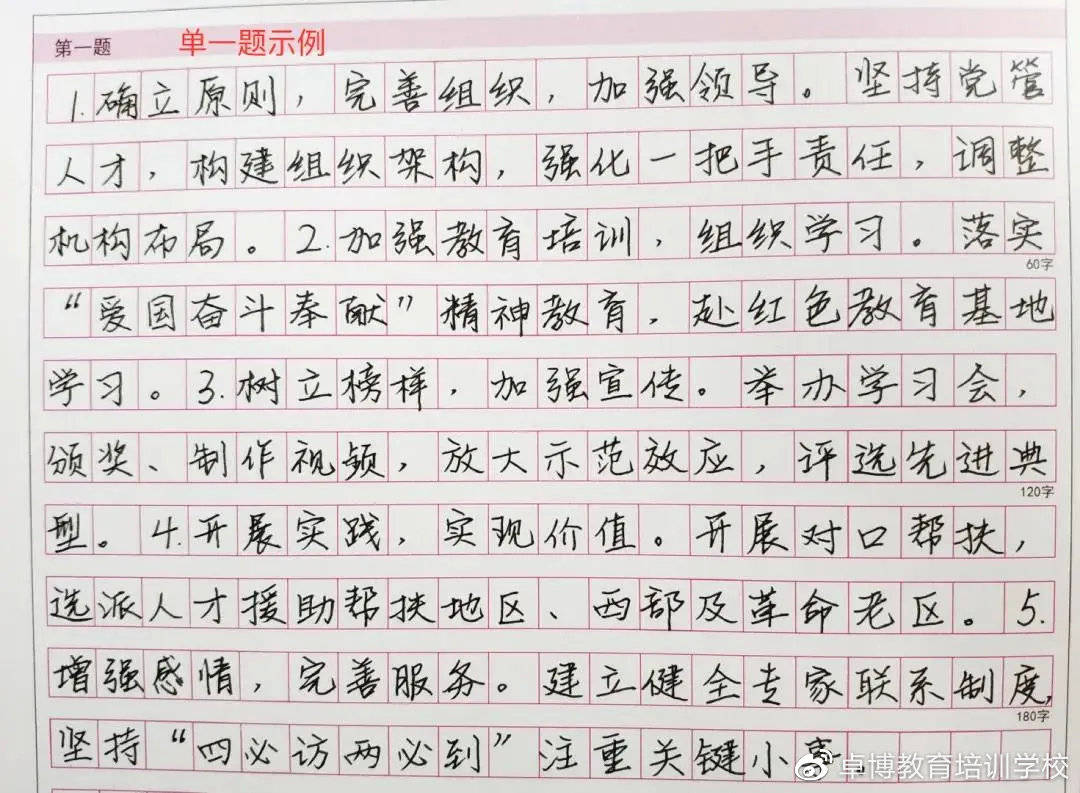 第一题 单一题示例
1.确立原则，完善组织，加强领导。坚持党管
人才，构建组织架构，强化一把手责任，调整
机构布局。2.加强教育培训，组织学习。落实
60字
“爱国奋斗奉献”精神教育，赴红色教育基地
学习。3.树立榜样，加强宣传。举办学习会，
颁奖、制作视频，放大示范效应，评选先进典
120字
型。4.开展实践，实现价值。开展对口帮扶，
选派人才援助帮扶地区、西部及革命老区。5.
增强感情，完善服务。建立健全专家联系制度，
180字
坚持“四必访两必到”注重关键小事
卓博教育培训学校